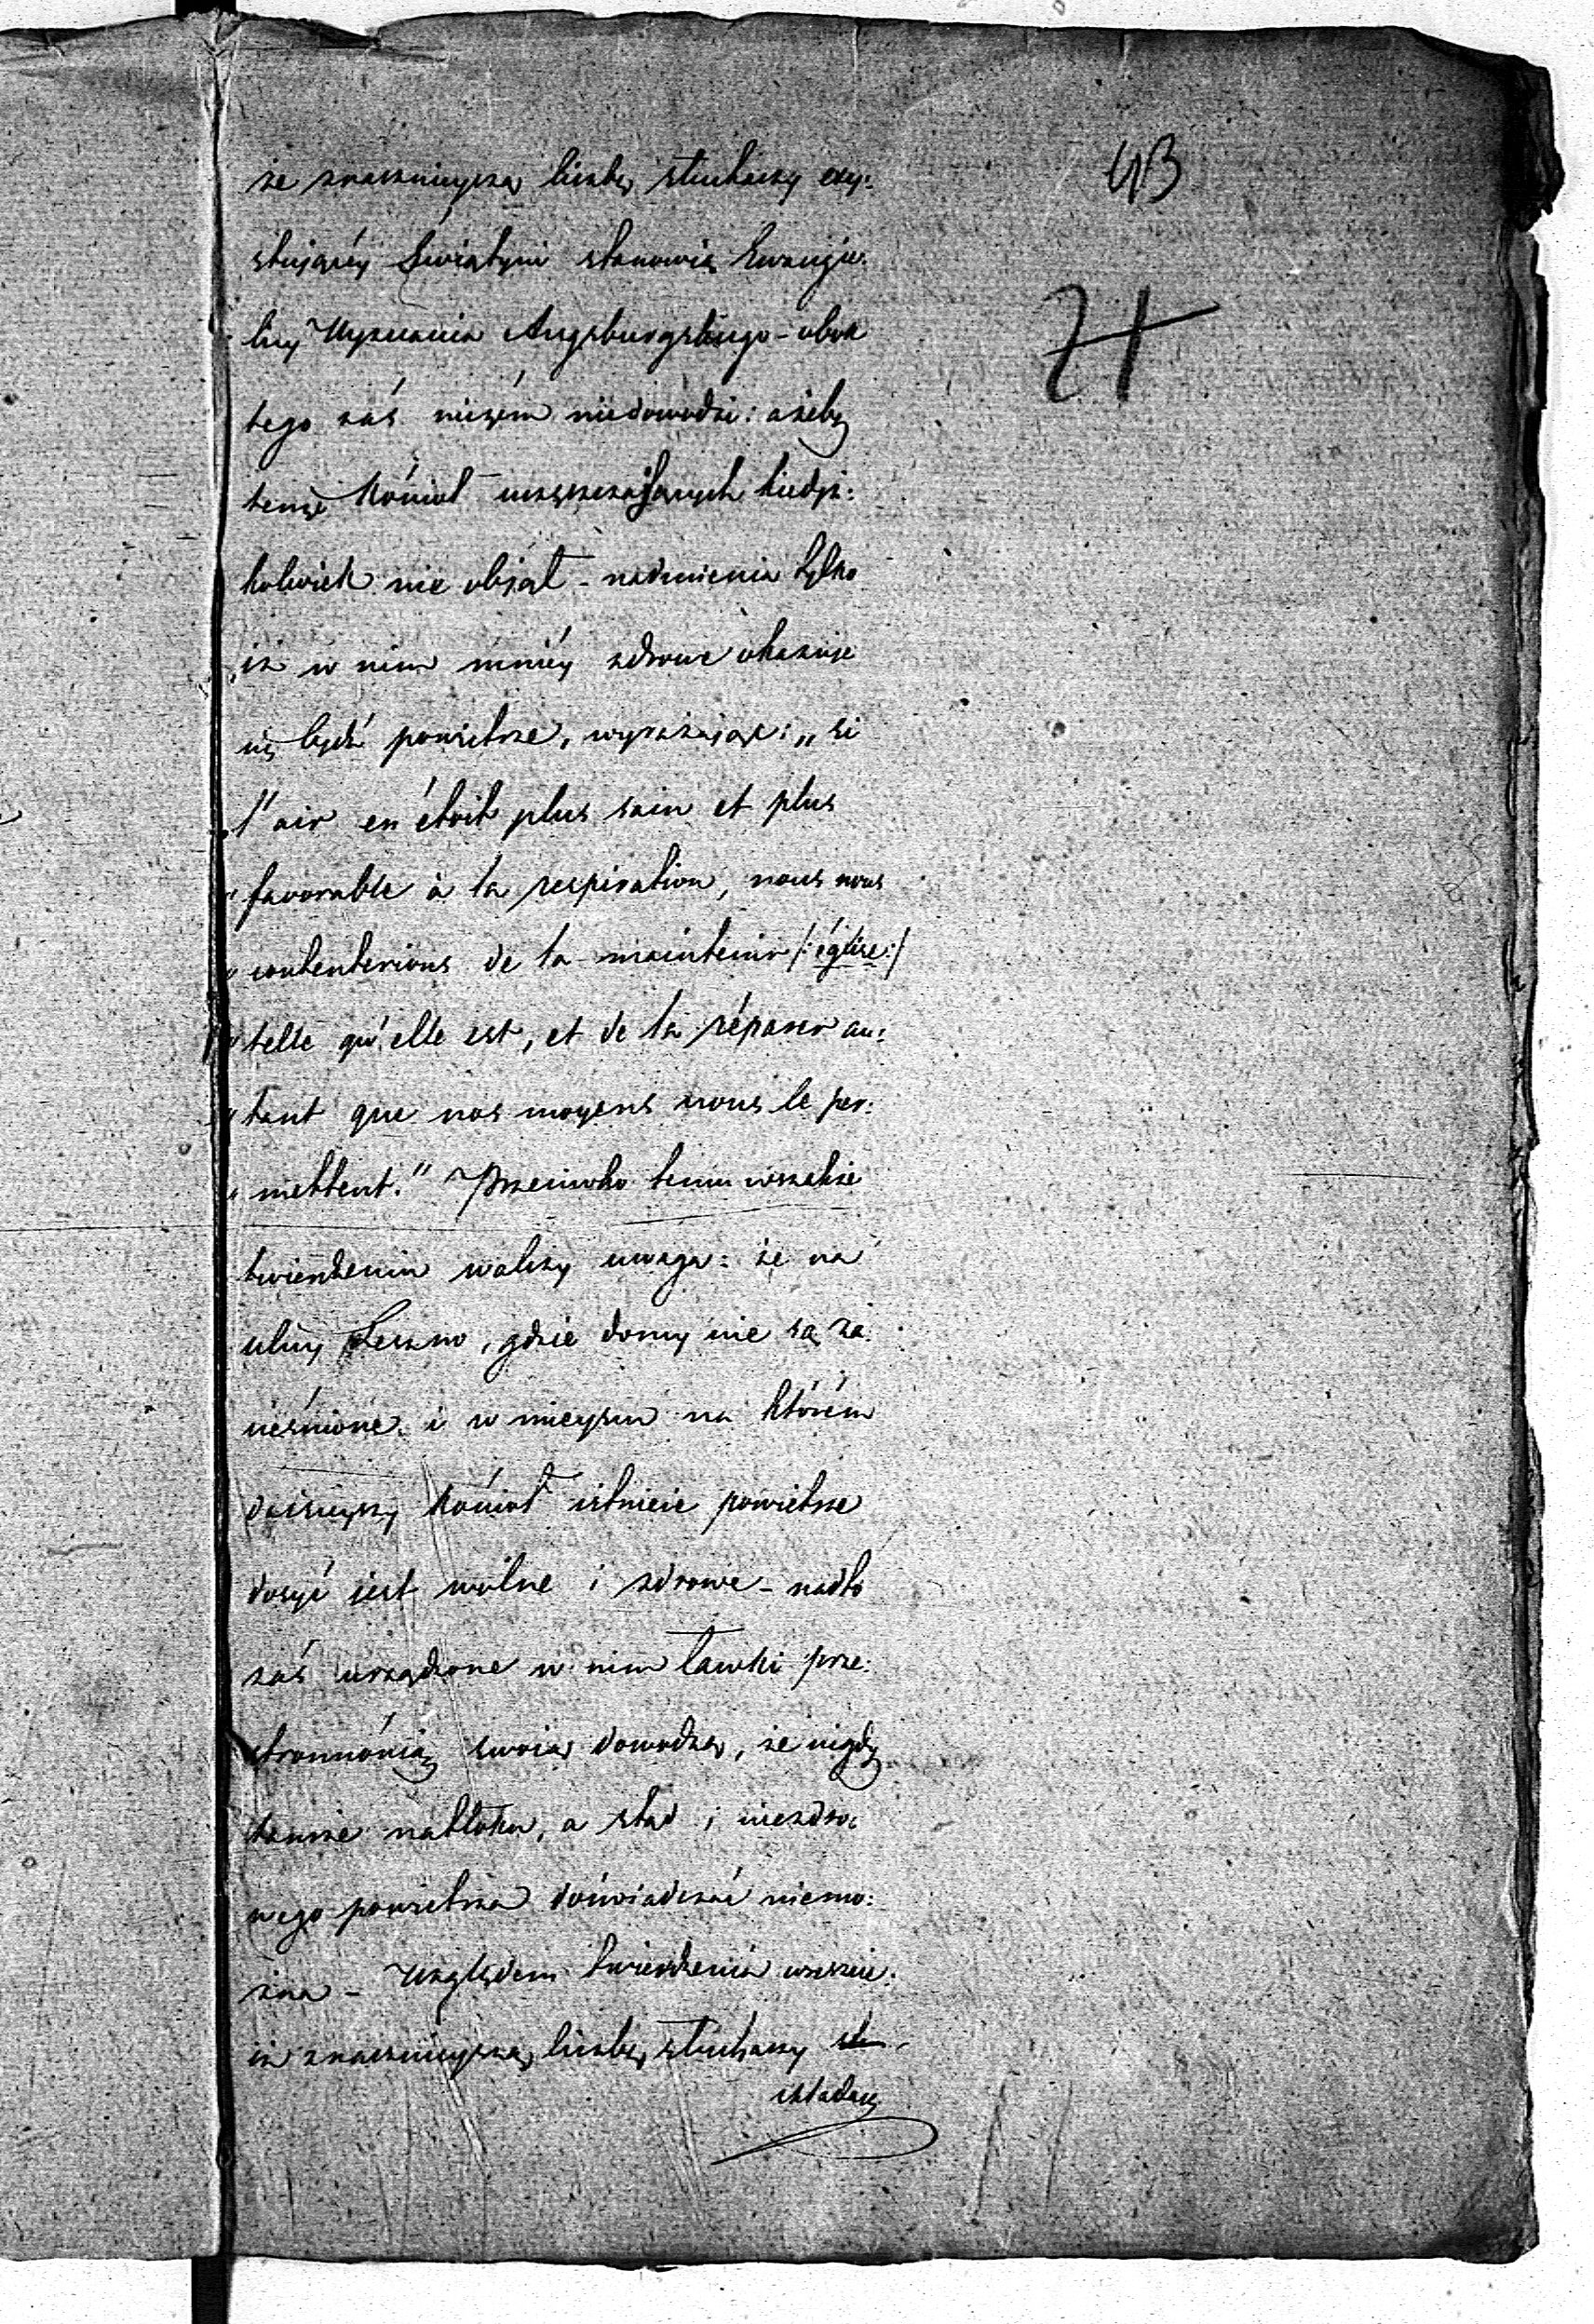 43
71
że znacznieyszą liczbę słuchaczy exy:
stuiącéy Świątyni stanowią Ewangie:
licy Wyznania Augsburgskiego - obok
tego zaś niczém niedowodzi: ażeby
tenże Kościoł uczęszczaiących kiedyś:
kolwiek nie objął - nadmienia tylko
iż w nim mniéy zdrowe okazuie
się bydź powietrze, wyrażaiąc: „si
„l'air en étoit plus sain et plus
„favorable à la respiration, nous nous
„contenterions de la maintenir /:église:/
„telle qu'elle est, et de la réparer au:
„tant que nos moyens nous le per:
„mettent." Przeciwko temu wszakże
twierdzeniu walczy uwaga: że na
ulicy Leszno, gdzie domy nie są za:
cieśnione i w mieyscu na którém
dzisieyszy Kościoł istnieie powietrze
dosyć jest wolne i zdrowe - nadto
zaś urządzone w nim ławki prze:
stronnością swoią dowodzą, że nigdy
tamże natłoku, a stąd i niezdro:
wego powietrza doświadczać niemo:
żna - Względem twierdzenia wreszcie:
iż znacznieyszą liczbę słuchaczy
składaią